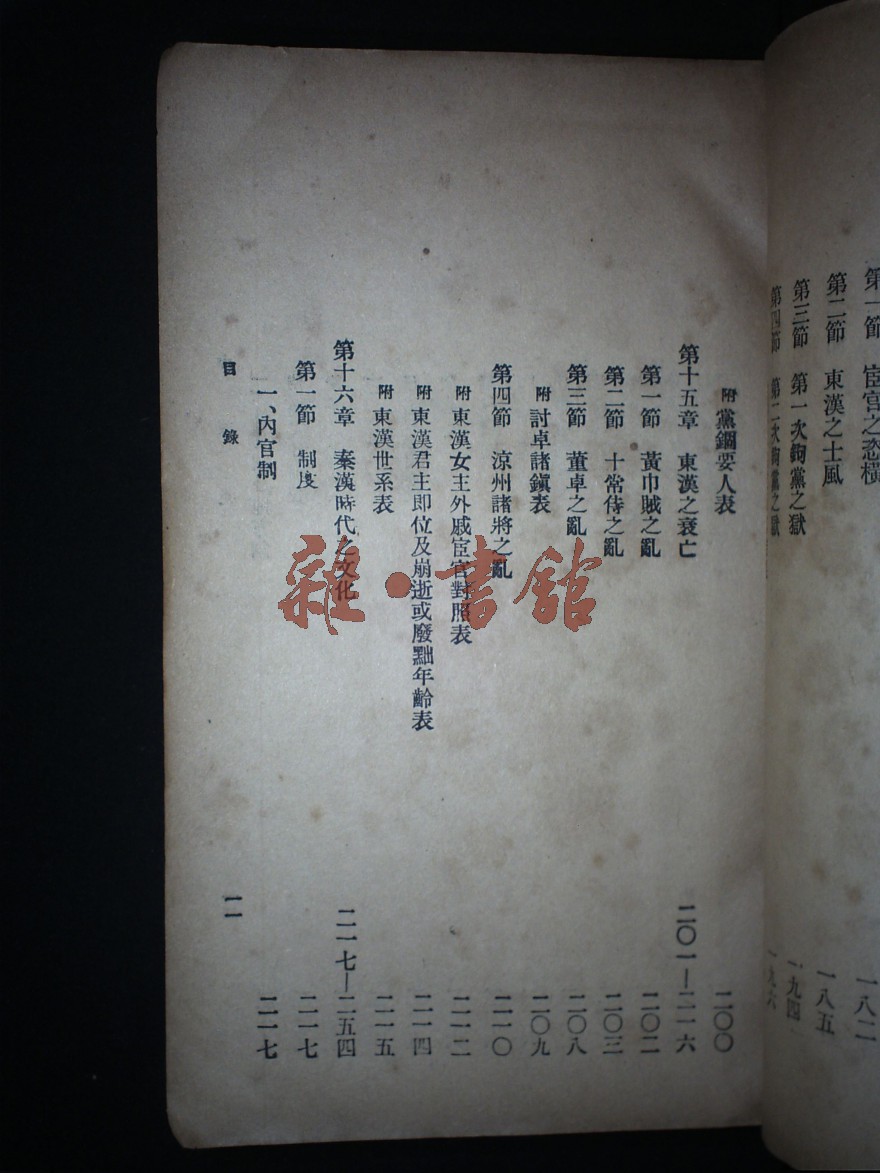 第一節　宦官之恣橫　一八二
第二節　東漢之士風　一八五
第三節　第一次鉤黨之獄　一九四
第四節　第二次鉤黨之獄　一九六
附　黨錮要人表　二〇〇
第十五章　東漢之衰亡　二〇一—二一六
第一節　黃巾賊之亂　二〇二
第二節　十常侍之亂　二〇三
第三節　董卓之亂　二〇八
附　討卓諸鎮表　二〇九
第四節　涼州諸將之亂　二一〇
附　東漢女主外戚宦官對照表　二一二
附　東漢君主即位及崩逝或廢黜年齡表　二一四
附　東漢世系表　二一五
第十六章　秦漢時代之文化　二一七—二五四
第一節　制度　二一七
一、內官制　二一七
目錄　一一
雜·書館